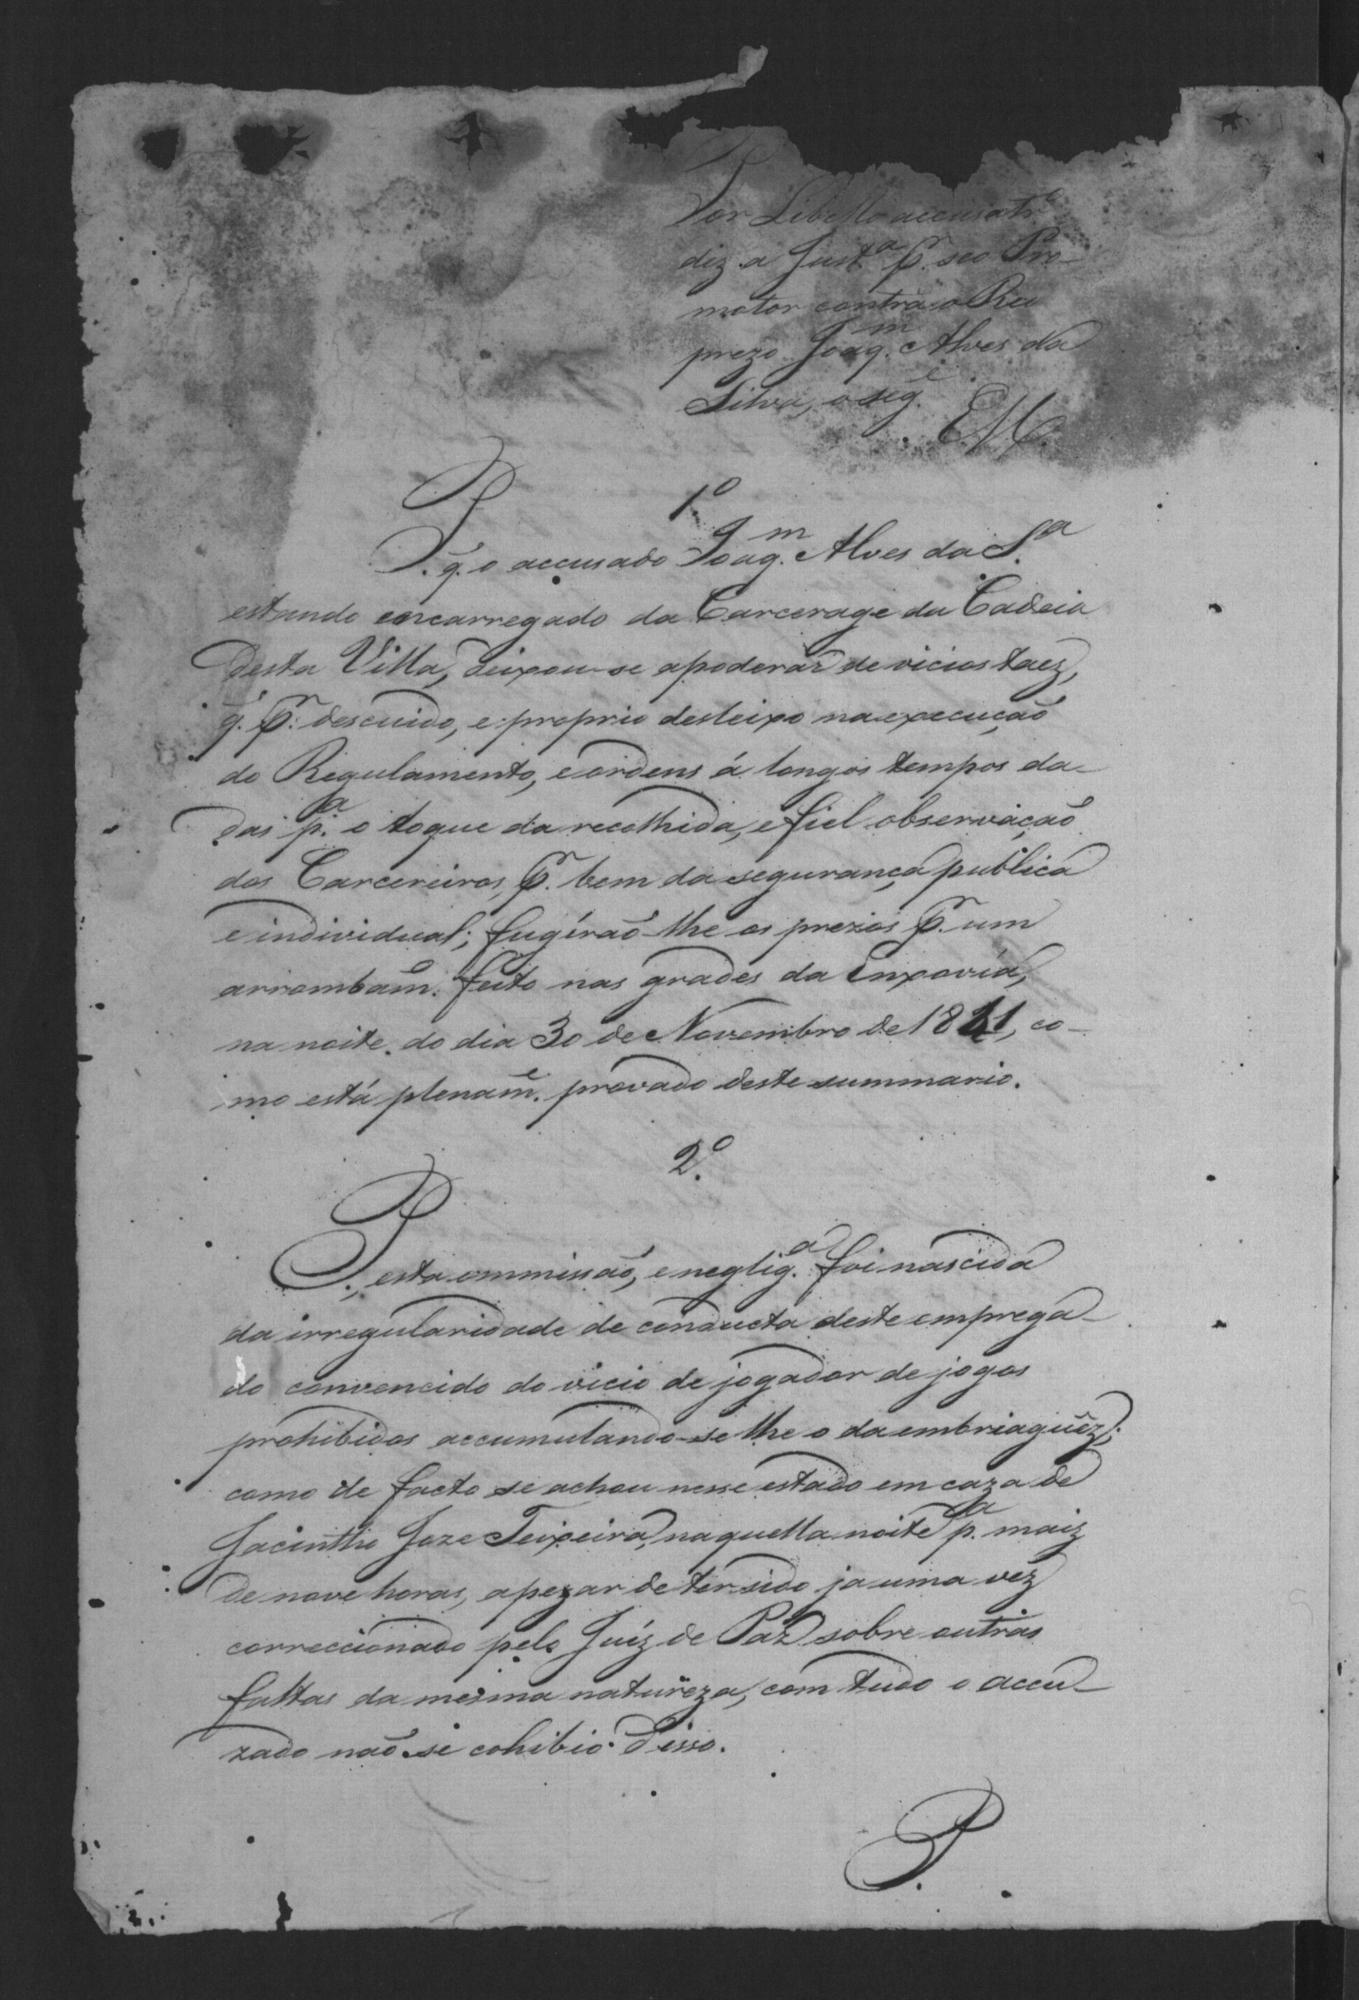 Por Libello accusatr.
diz a Just.ª P.r seo Pro-
motor contra o Reu
prezo Joaq.m Alves da
Silva, o seg.e
E. M.
1º
P. q. o accusado Joaq.m Alves da S.ª
estando encarregado da Carcerage da Cadeia
desta Villa, deixou-se apoderar de vicios taez,
q. p.r descuido, e proprio desleixo na execução
do Regulamento, e ordens á longos tempos da-
das p.ª o toque da recolhida, e fiel observação
dos Carcereiros, p.r bem da segurança publica
e individual; fugirão-lhe os prezos p.r um
arrombam.º feito nas grades da Enxovia,
na noite do dia 30 de Novembro de 1841, co-
mo está plenam.e provado deste summario.
2º
P., esta ommissão, e neglig.ª foi nascida
da irregularidade de conducta deste emprega-
do convencido do vicio de jogador de jogos
prohibidos accumulando-se lhe o da embriaguêz;
como de facto se achou nesse estado em caza de
Jacintho Joze Teixeira, naquella noite p.ª maiz
de nove horas, apezar de ter sido ja uma vez
correccionado pelo Juiz de Paz sobre outras
faltas da mesma naturêza, com tudo o accu-
zado não se cohibio disso.
P.